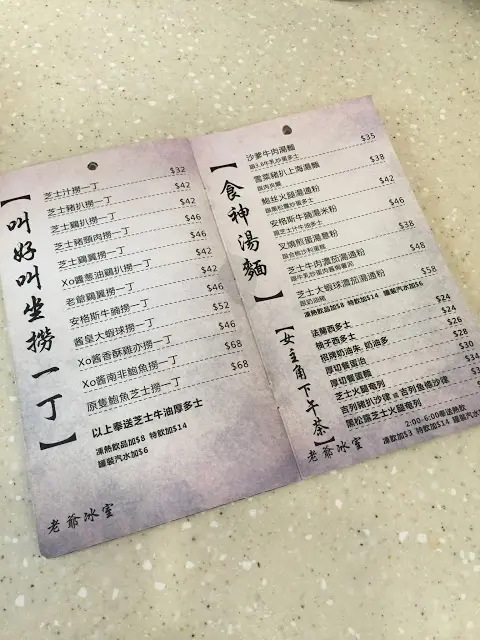 【叫好叫坐撈一丁】
芝士汁撈一丁 $32
芝士豬扒撈一丁 $42
芝士鷄扒撈一丁 $42
芝士豬頸肉撈一丁 $46
芝士鷄翼撈一丁 $46
Xo醬葱油鷄扒撈一丁 $42
老爺鷄翼撈一丁 $42
安格斯牛腩撈一丁 $46
醬皇大蝦球撈一丁 $52
Xo醬香酥雞亦撈一丁 $46
Xo醬南非鮑魚撈一丁 $68
原隻鮑魚芝士撈一丁 $68
以上奉送芝士牛油厚多士
凍熱飲品加$8 特飲加$14
罐裝汽水加$6
老爺冰室
【食神湯麵】
沙爹牛肉湯麵 $35
跟3.6牛乳炒蛋多士
雪菜豬扒上海湯麵 $38
鮑絲火腿湯通粉 $42
跟黑松露炒蛋多士
安格斯牛腩湯米粉 $46
跟芝士汁牛油多士
叉燒煎蛋湯意粉 $38
芝士牛肉濃茄湯通粉 $48
芝士大蝦球濃茄湯通粉 $58
跟奶油豬
凍熱飲品加$8 特飲加$14 罐裝汽水加$6
【女主角下午茶】
法蘭西多士 $24
桃子西多士 $26
招牌奶油朱. 奶油多 $24
厚切餐蛋治 $28
厚切餐蛋麵 $30
芝士火腿奄列
吉列豬扒沙律 或 吉列魚條沙律
黑松露芝士火腿奄列
2:00-6:00奉送熱飲
凍飲加$3 特飲加$14
老爺冰室